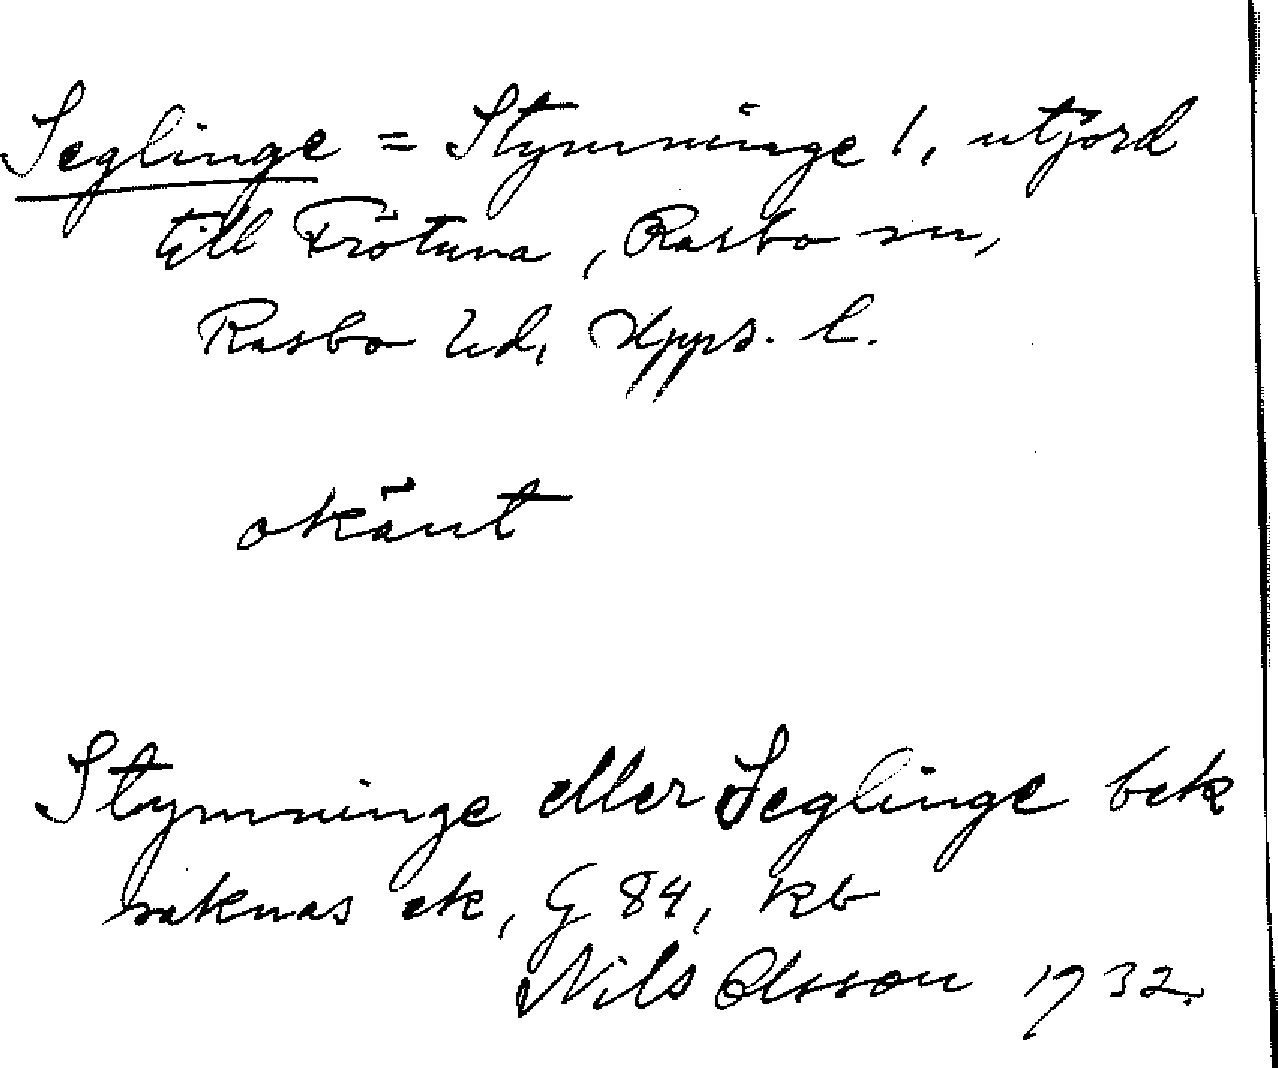 Seglinge = Stymninge 1, utjord
till Frötuna, Rasbo sn,
Rasbo hd, Upps. l.
okänt
Stymninge eller Seglinge bek
saknas ek, G 84, kb
Nils Olsson 1932.